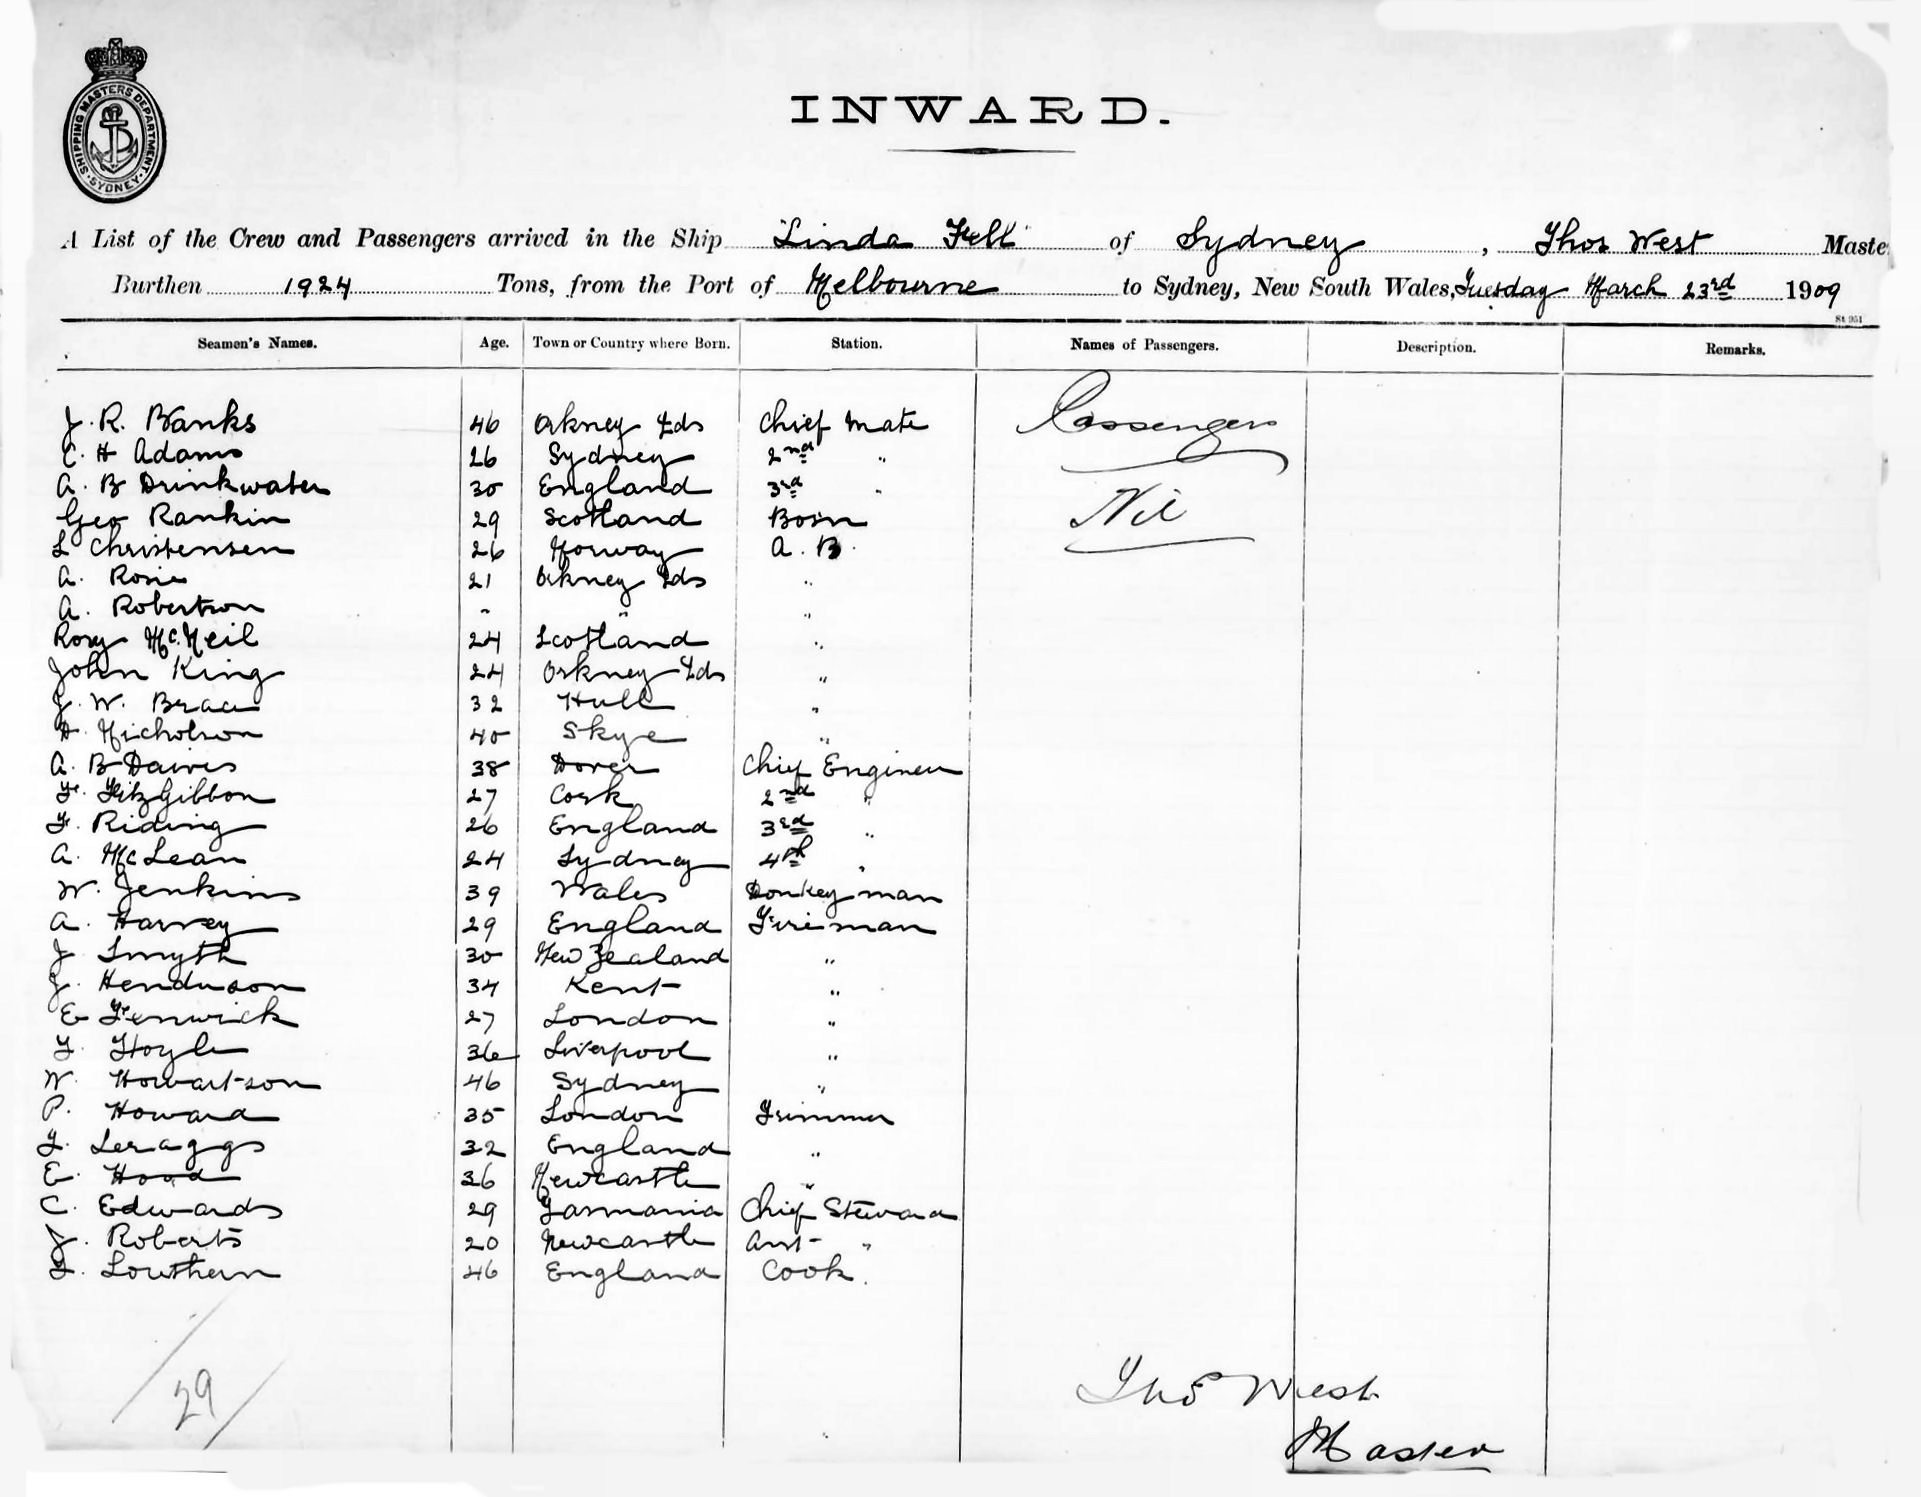 SHIPPING MASTERS DEPARTMENT · SYDNEY ·
INWARD.
A List of the Crew and Passengers arrived in the Ship "Linda Fell" of Sydney, Thos West Maste
Burthen 1924 Tons, from the Port of Melbourne to Sydney, New South Wales, Tuesday March 23rd 1909
St 951
Seamen's Names. Age. Town or Country where Born. Station. Names of Passengers. Description. Remarks.
J. R. Banks 46 Orkney Lds Chief Mate Passengers
C. H Adams 26 Sydney 2nd "
A. B Drinkwater 30 England 3rd "
Geo Rankin 29 Scotland Bosn Nil
L Christensen 26 Norway A. B.
A. Rosie 21 Orkney Lds "
A. Robertson " " "
Rory McNeil 24 Scotland "
John King 24 Orkney Lds "
J. W. Brace 32 Hull "
D. Nicholson 40 Skye "
A. B Davies 38 Dover Chief Engineer
F. FitzGibbon 27 Cork 2nd "
F. Riding 26 England 3rd "
A. McLean 24 Sydney 4th "
W. Jenkins 39 Wales Donkeyman
A. Harvey 29 England Fireman
J Smyth 30 New Zealand "
J. Henderson 34 Kent "
E Fenwick 27 London "
Hoyle 36 Liverpool "
W. Howartson 46 Sydney "
P. Howard 35 London Trimmer
32 England "
E. Hood 36 Newcastle "
C. Edwards 29 Tasmania Chief Steward
J. Roberts 20 Newcastle Asst "
Lowthern 46 England Cook.
29
Thos West
Master